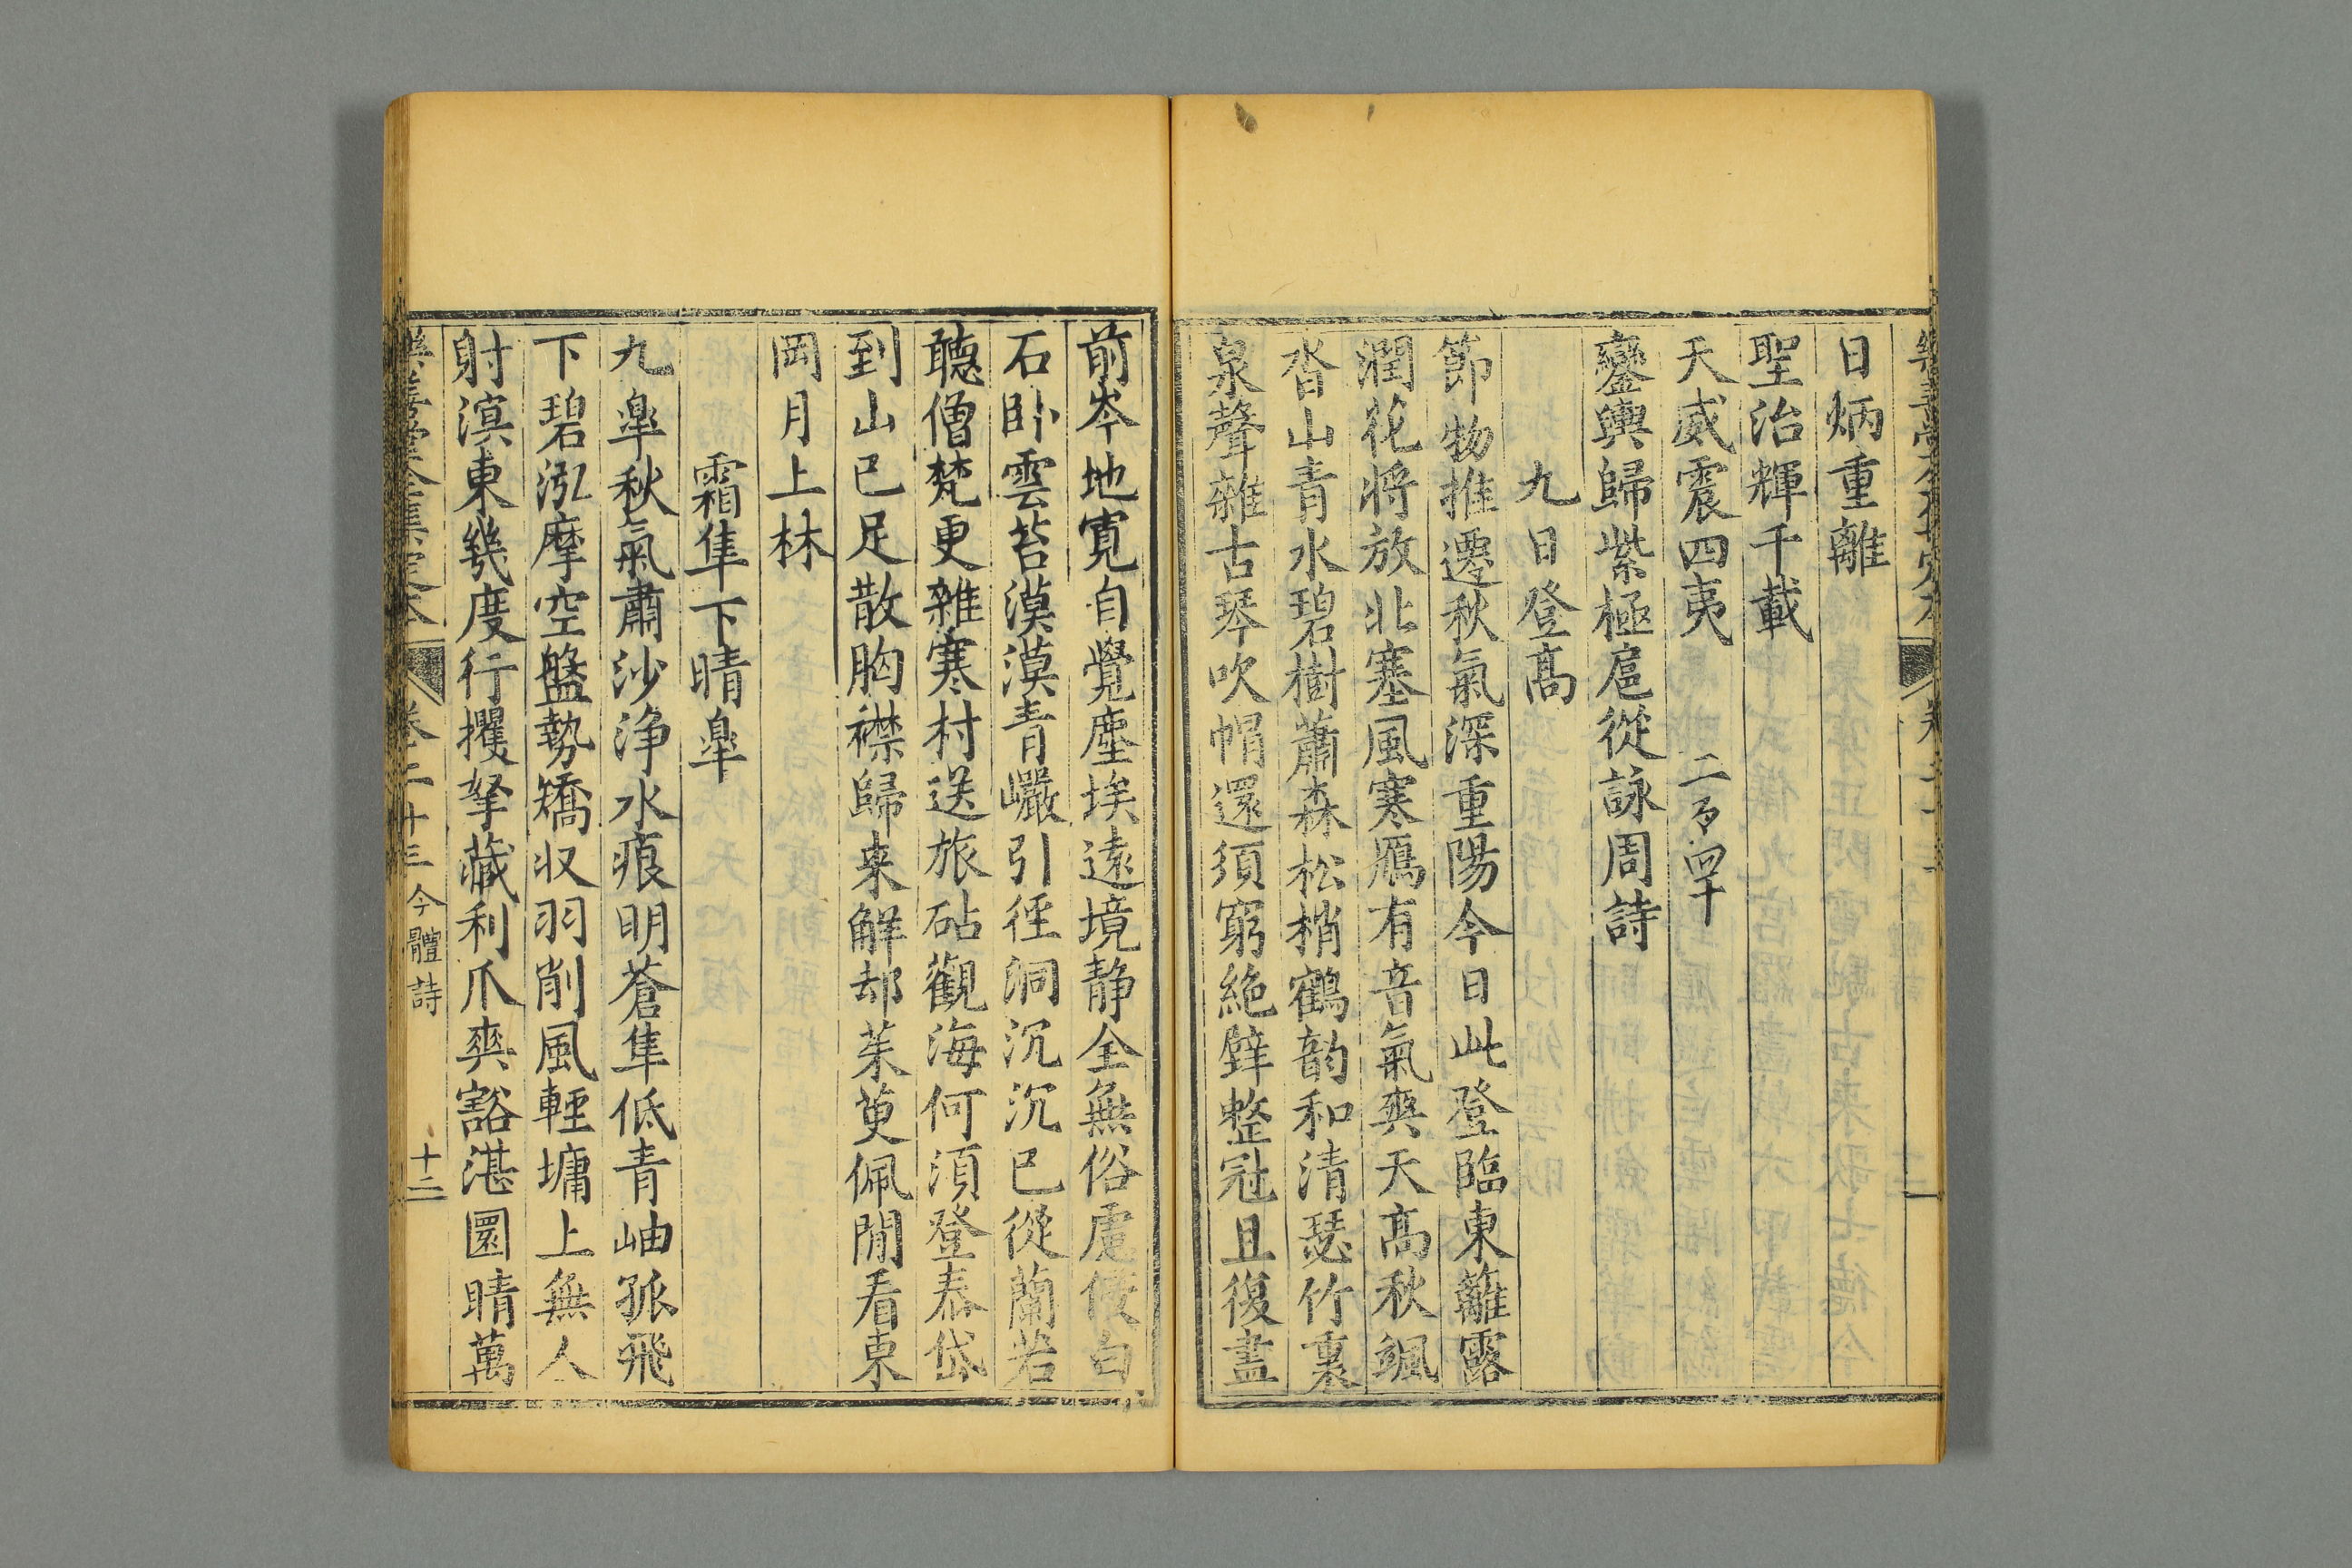 日炳重離
聖治輝千載
天威震四夷
鑾輿歸紫極扈從詠周詩
九日登髙
節物推遷秋氣深重陽今日此登臨東籬露
潤花將放北塞風寒鴈有音氣爽天髙秋颯
沓山青水碧樹蕭森松梢鶴韵和清瑟竹裏
泉聲雜古琴吹帽還須窮絶壁整冠且復盡
前岑地寛自覺塵埃遠境静全無俗慮侵白
石卧雲苔漠漠青巗引徑洞沉沉已從蘭若
聽僧梵更雜寒村送旅砧觀海何須登泰岱
到山已足散胸襟歸来解却茱萸佩閒看東
岡月上林
霜隼下晴臯
九臯秋氣肅沙浄水痕明蒼隼低青岫孤飛
下碧泓摩空盤勢矯収羽削風輕墉上無人
射溟東幾度行攫拏藏利爪爽豁湛圜睛萬
樂善堂全集定本 卷二十三 今體詩 十二